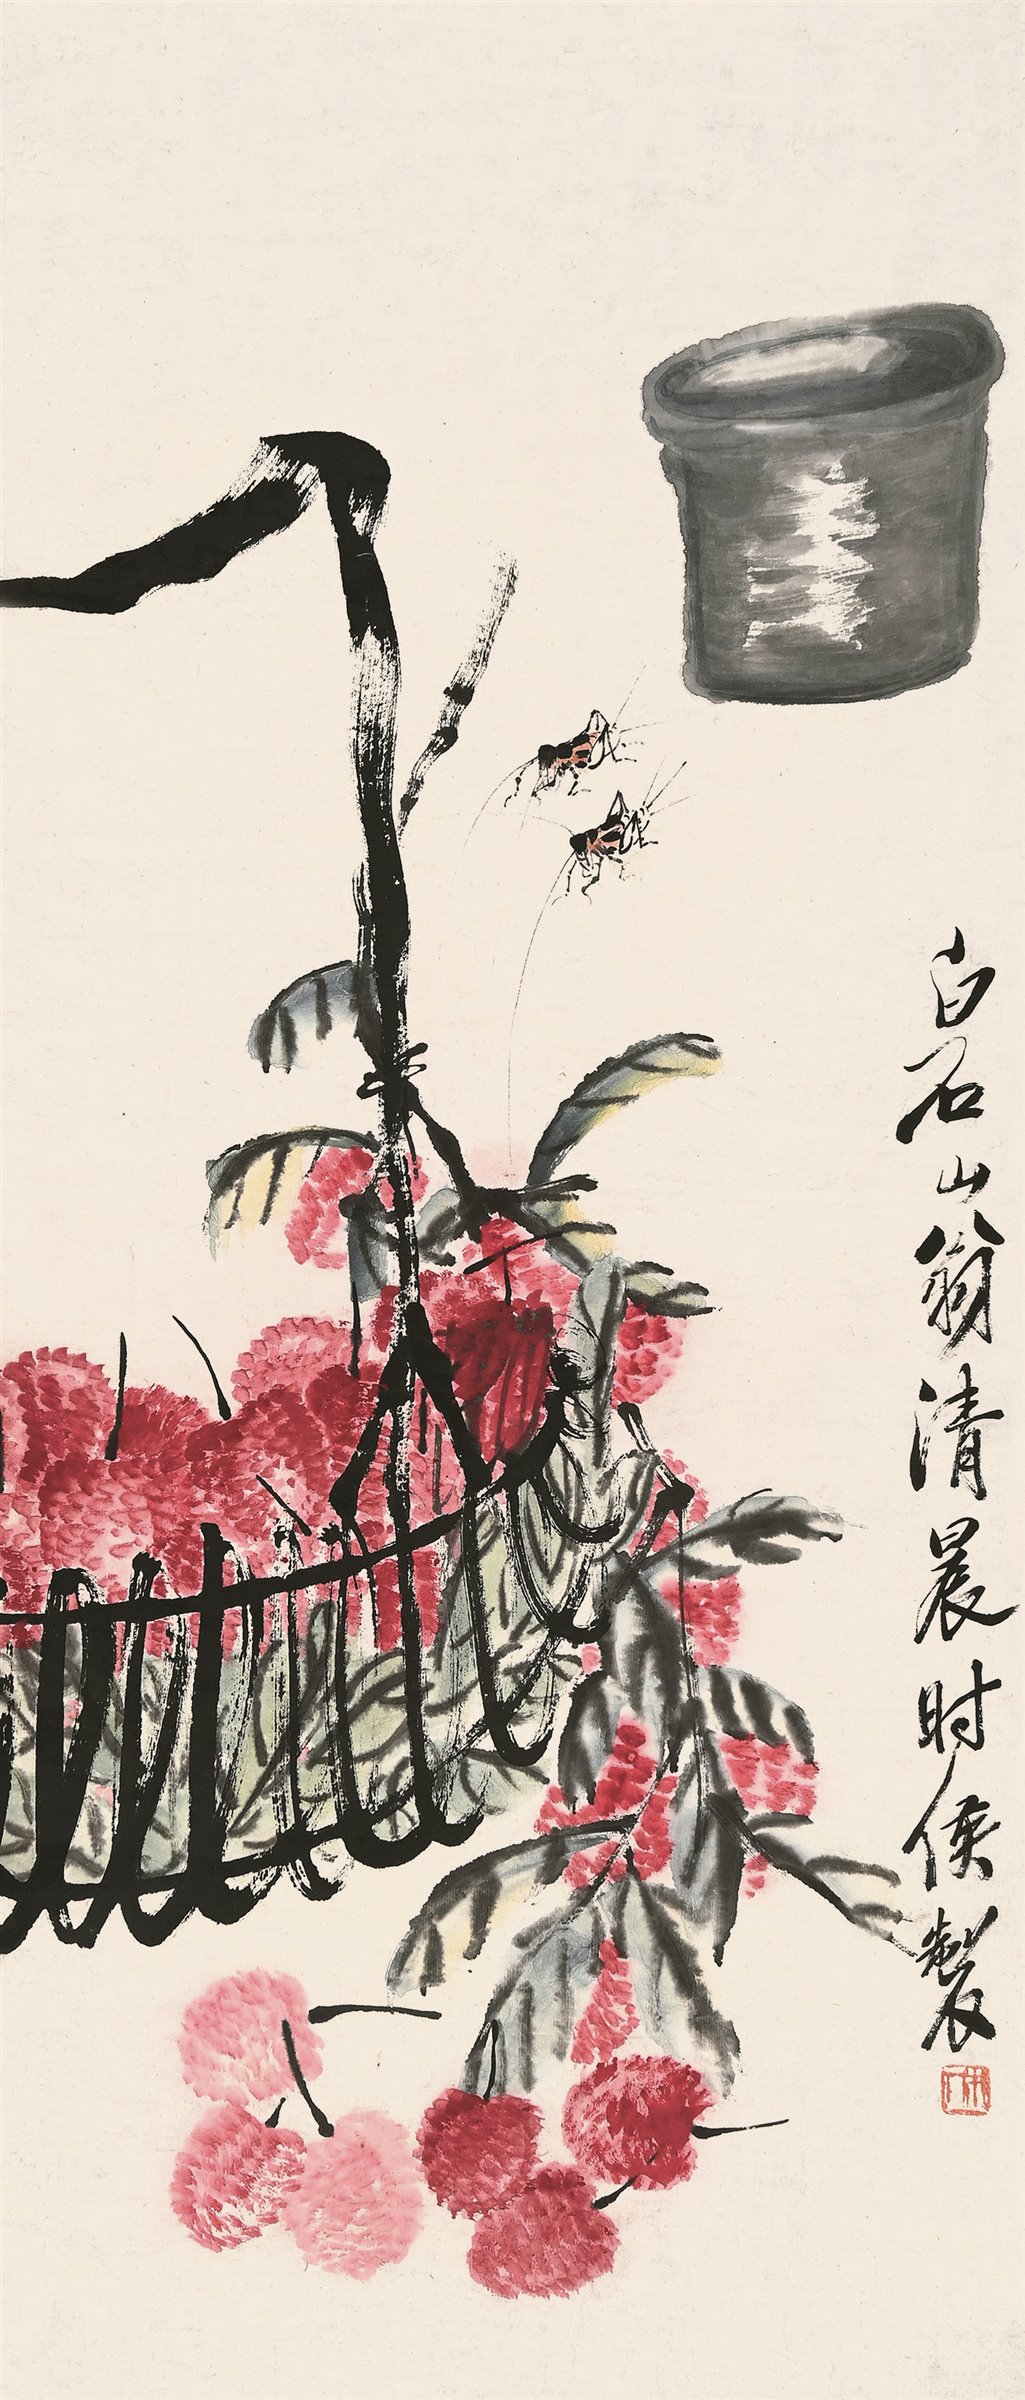 白石山翁清晨时候製